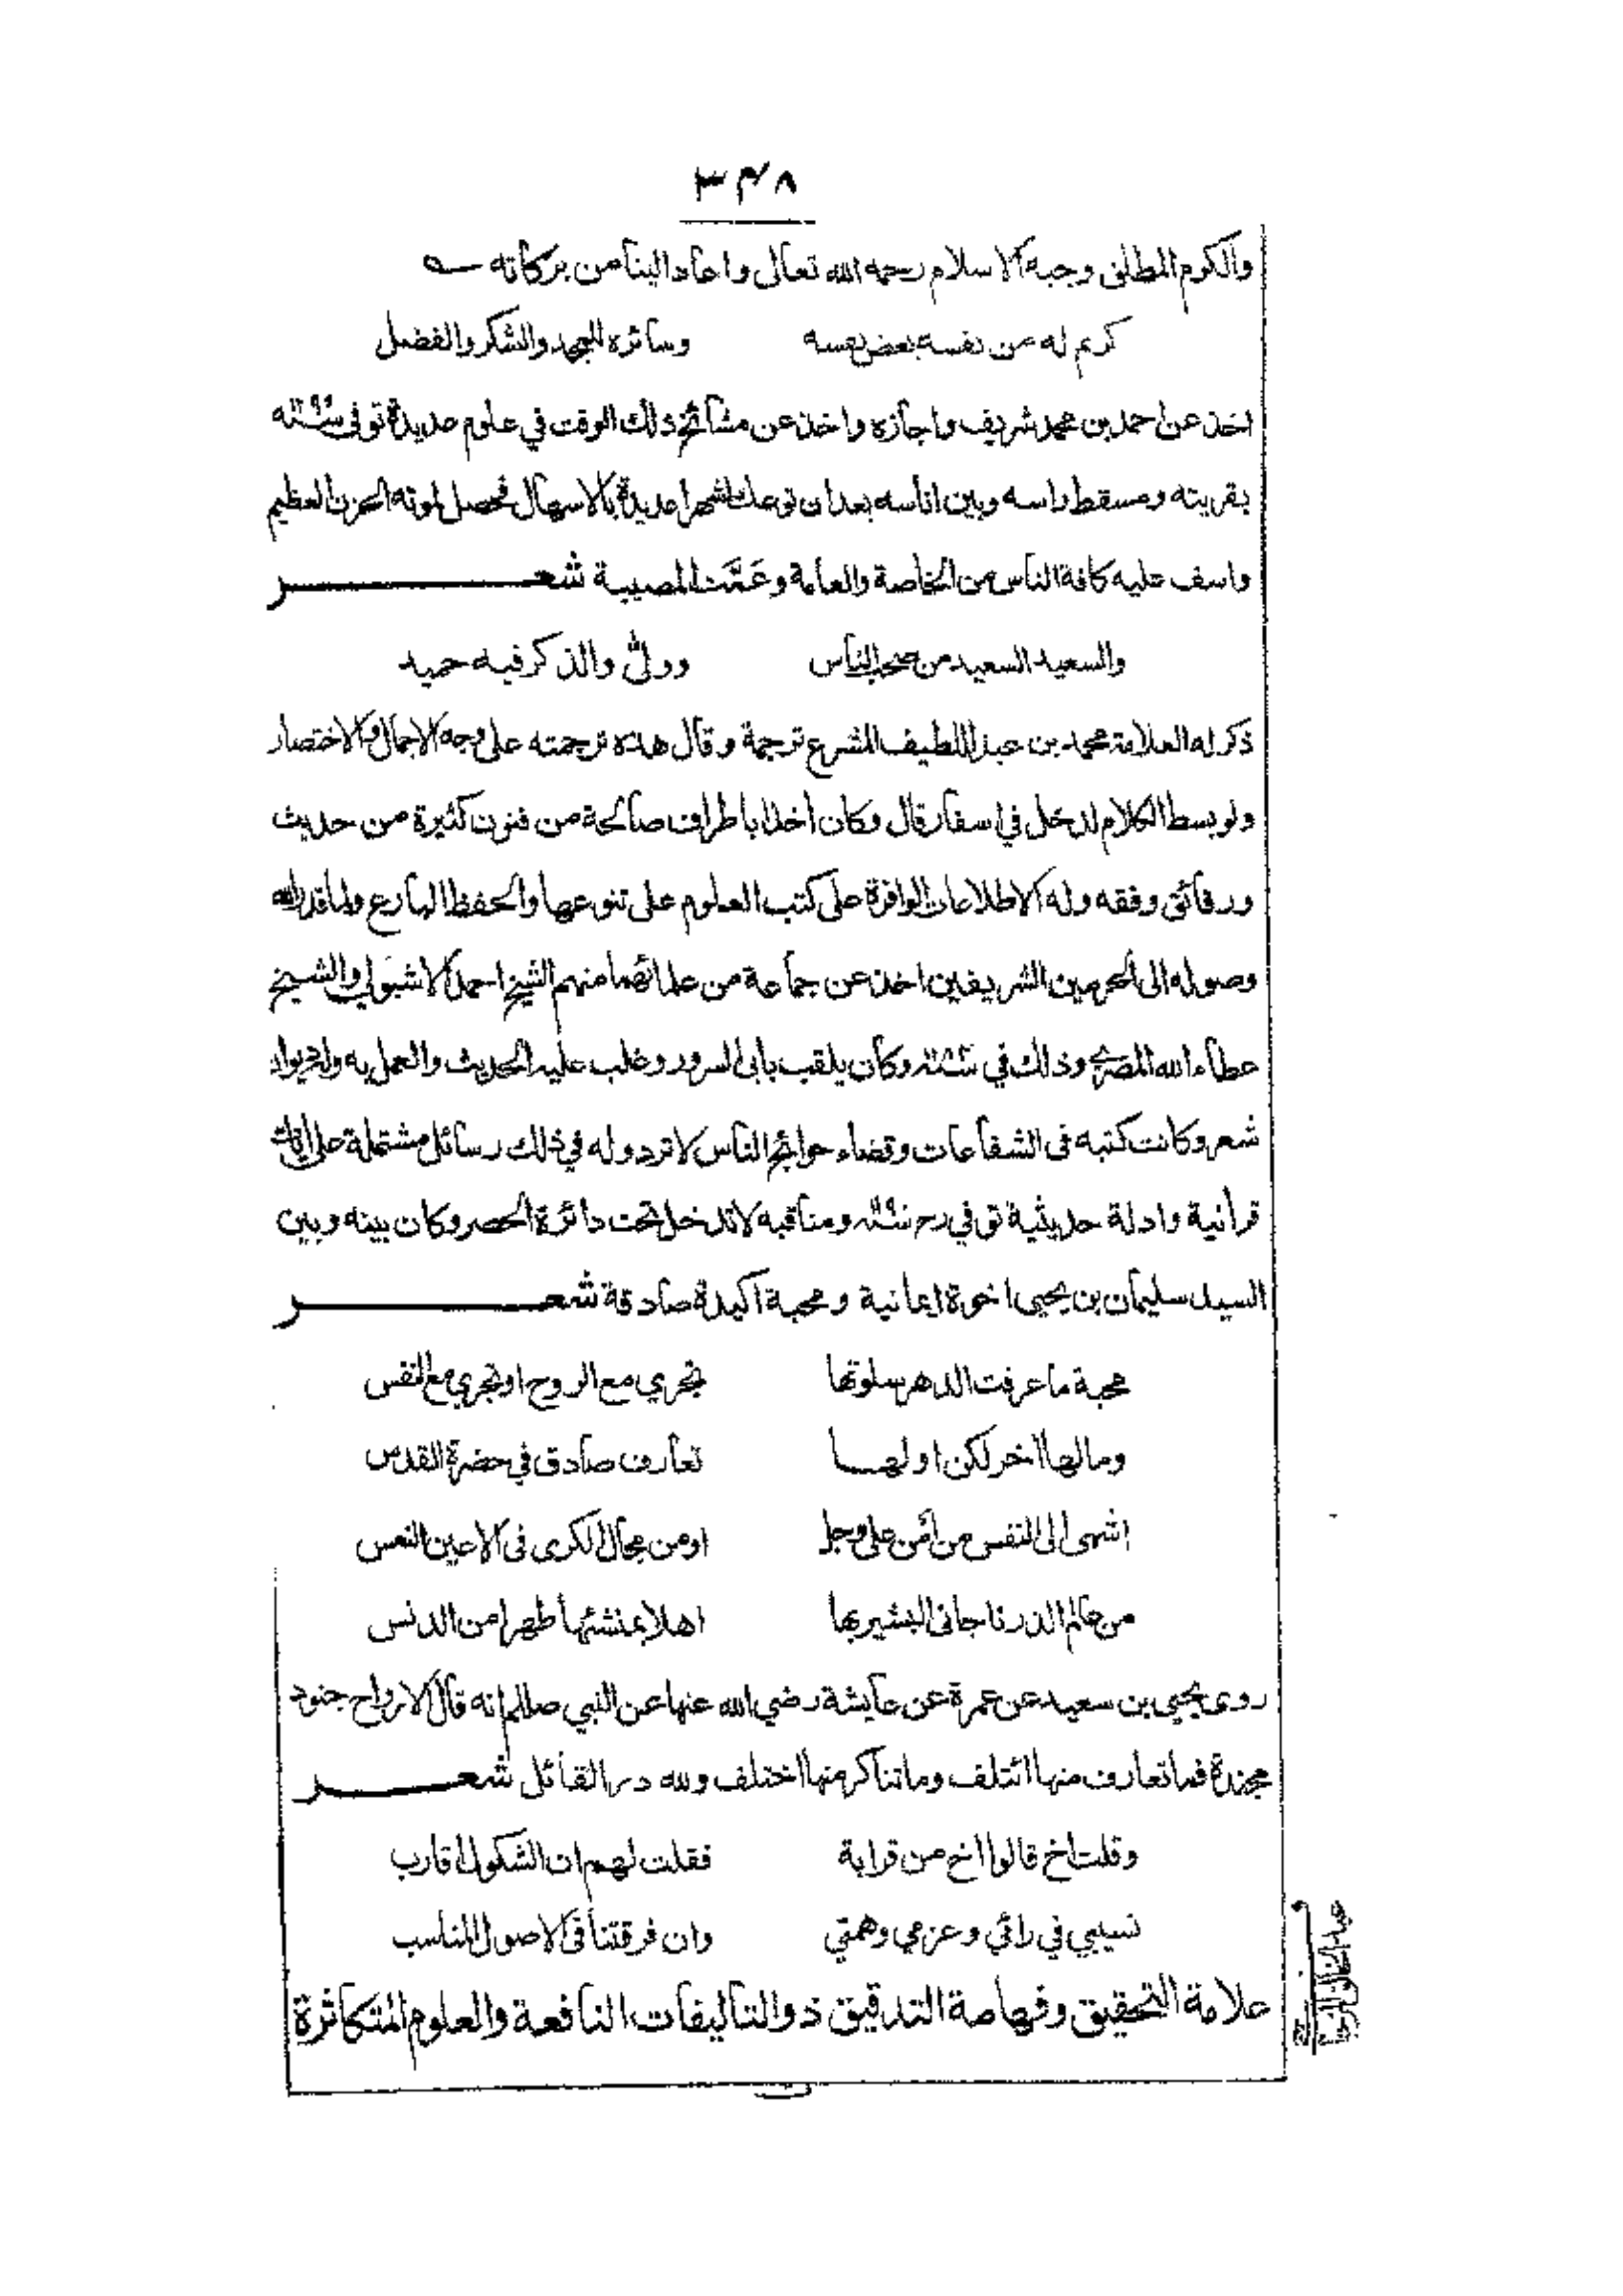 ٣٤٨
والكرم المطلق وجيه الاسلام رحمه الله تعالى واعاد الينا من بركاته
كريم له من نفسه بعض نفسه وسائره للجمد والشكر والفضل
اخذ عن احمد بن محمد شريف واجازه واخذ عن مشائخ ذلك الوقت في علوم عديدة توفى
بقريته ومسقط راسه وبين اناسه بعد ان توعك اشهرا عديدة بالاسهال فحصل لموته الحزن العظيم
واسف عليه كافة الناس من الخاصة والعامة وعَمَّت المصيبة شعر
والسعيد السعيد من صحب الناس وولّى والذكر فيه حميد
ذكر له العلامة محمد بن عبد اللطيف المشرع ترجمة وقال هذه ترجمته على وجه الاجمال والاختصار
ولو بسط الكلام لدخل في اسفار قال وكان اخذا باطراف صالحة من فنون كثيرة من حديث
ورقائق وفقه وله الاطلاعات الوافرة على كتب العلوم على تنوعها والحفظ البارع ولما قدر الله
وصوله الى الحرمين الشريفين اخذ عن جماعة من علمائهما منهم الشيخ احمد الاشبولي والشيخ
عطاء الله المصري وذلك في وكان يلقب بابى السرور وغلب عليه الحديث والعمل به وله ديوان
شعر وكانت كتبه فى الشفاعات وقضاء حوائج الناس لا ترد وله في ذلك رسائل مشتملة على ايات
قرانية وادلة حديثية توفي رح ومناقبه لا تدخل تحت دائرة الحصر وكان بينه وبين
السيد سليمان بن يحيى اخوة ايمانية ومحبة اكيدة صادقة شعر
محبة ما عرفت الدهر سلوتها تجري مع الروح او تجري مع النفس
وما لها اخر لكن اولها تعارف صادق في حضرة القدس
اشهى الى النفس من امن على وجل او من مجال الكرى فى الاعين النعس
من عالم الذر نا جانى البشير بها اهلا بمنشئها طهرا من الدنس
روى يحيى بن سعيد عن عمرة عن عايشة رضي الله عنها عن النبي صللم انه قال الارواح جنود
مجندة فما تعارف منها ائتلف وما تناكر منها اختلف ولله در القائل شعر
وقلت اخ قالوا اخ من قرابة فقلت لهم ان الشكول اقارب
نسيبي في رائي وعزمي وهمتي وان فرقتنا فى الاصول المناسب
علامة التحقيق وفهامة التدقيق ذو التاليفات النافعة والعلوم المتكاثرة
عبد الخالق